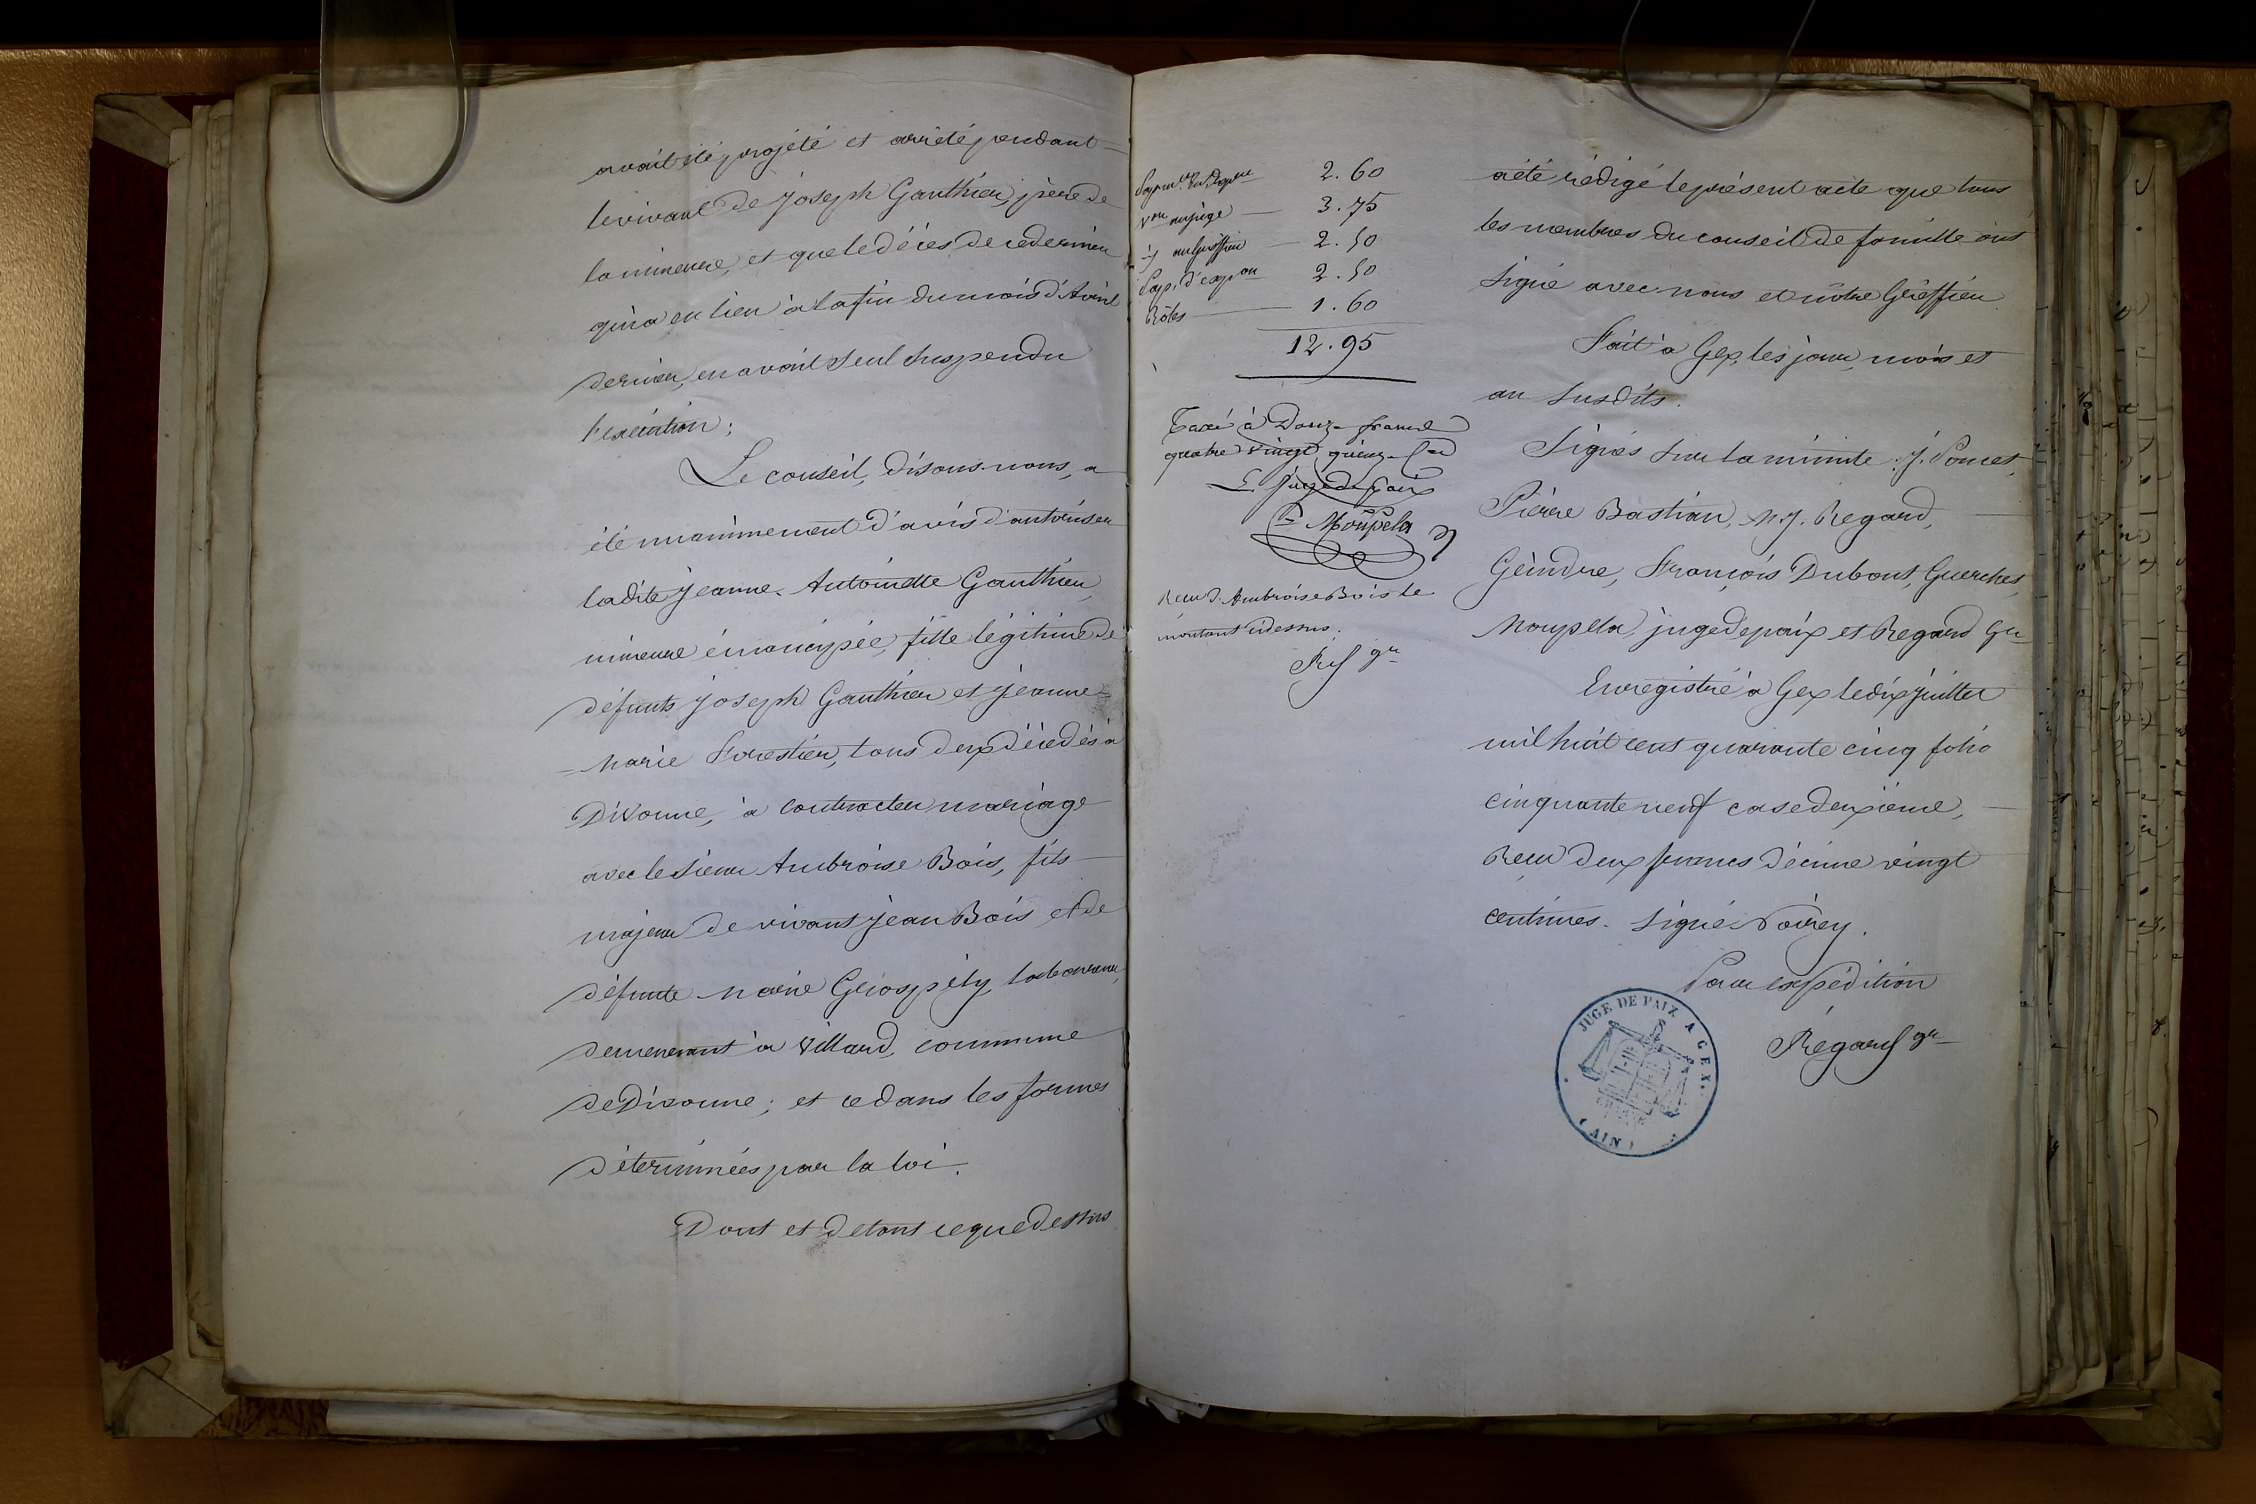 avait été projété et arrêté pendant
le vivant de Joseph Gauthier, père de
la mineure, et que le décès de ce dernier
qui a eu lieu à la fin du mois d'Avril
dernier, en avait seul suspendu
l'exécution;
Le conseil, disons-nous, a
été unanimement d'avis d'autoriser
ladite Jeanne-Antoinette Gauthier,
mineure émancipée, fille légitime de
défunts Joseph Gauthier et Jeanne-
-Marie Forestier, tous deux décédés à
Divonne, à contracter mariage
avec le sieur Ambroise Bois, fils
majeur de vivant Jean Bois et de
défunte Marie Grospély, laboureur,
demeurant à Villard, commune
de Divonne; et ce dans les formes
déterminées par la loi.
Dont et de tout ce que dessus
2.60
von au juge 3.75
au greffier 2.50
Pap. d'expon 2.50
Rôles 1.60
12.95
Taxé à Douze francs
quatre vingt quinze
Le Juge de Paix
Moupela
Reçu d'Ambroise Bois le
montant ci dessus.
Rd gr
a été rédigé le présent acte que tous
les membres du conseil de famille ont
signé avec nous et notre Greffier.
Fait à Gex, les jour, mois et
an susdits.
Signés sur la minute: J. Poncet,
Pierre Bastian, M. J. Regard,
Geindre, François Dubout, Guerches,
Moupela, juge de paix et Regard Gr
Enregistré à Gex le dix Juillet
mil huit cent quarante cinq folio
cinquante neuf case deuxième,
Reçu deux francs décime vingt
centimes. Signé Voirey.
Pour expédition
Régard gr
JUGE DE PAIX A GEX.
(AIN)